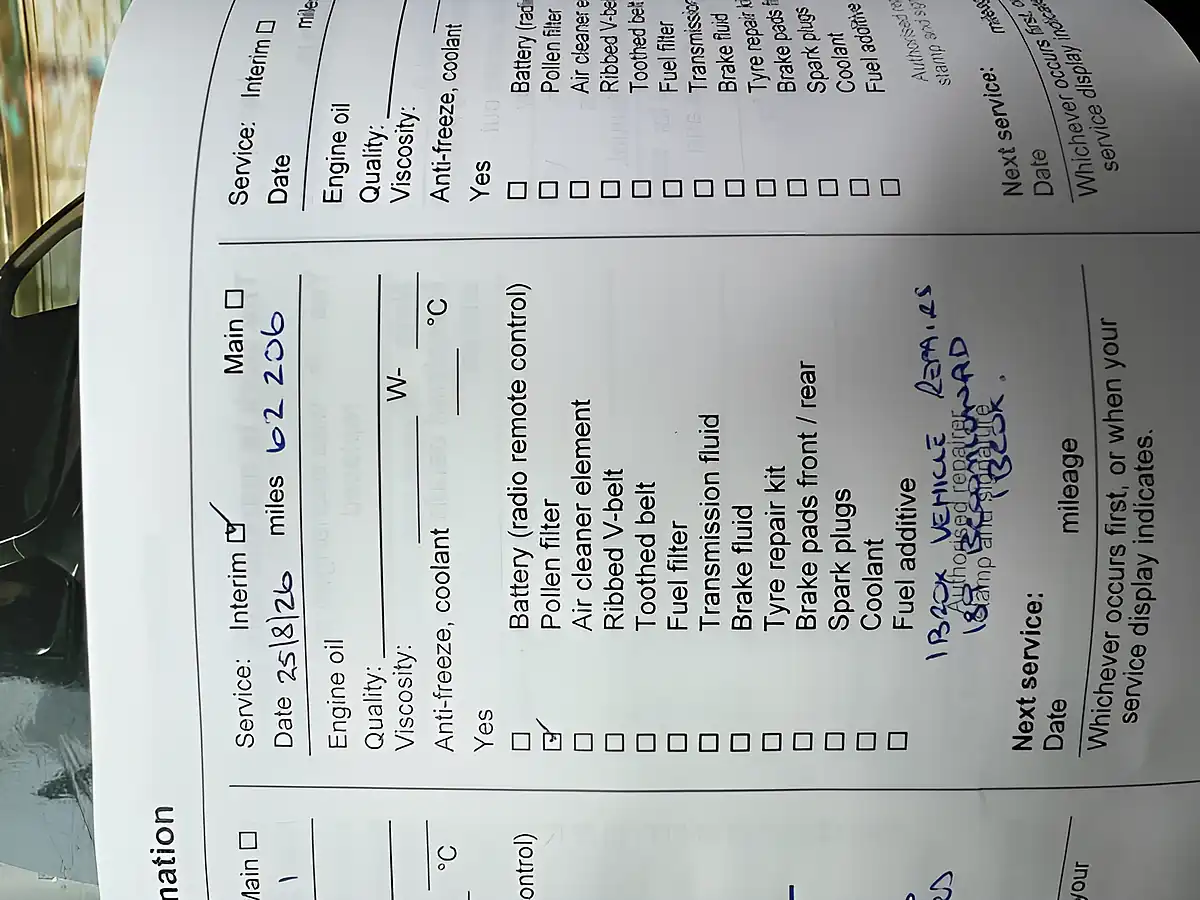 mation
Main
1
°C
ontrol)
your
Service: Interim Main
Date 25/8/26 miles 62 206
Engine oil
Quality:
Viscosity: W-
Anti-freeze, coolant °C
Yes
Battery (radio remote control)
Pollen filter
Air cleaner element
Ribbed V-belt
Toothed belt
Fuel filter
Transmission fluid
Brake fluid
Tyre repair kit
Brake pads front / rear
Spark plugs
Coolant
Fuel additive
VEHICLE REPAIRS
Authorised repairer
stamp and signature
Next service:
Date mileage
Whichever occurs first, or when your
service display indicates.
Service: Interim
Date mile
Engine oil
Quality:
Viscosity:
Anti-freeze, coolant
Yes
Battery (radi
Pollen filter
Air cleaner e
Ribbed V-be
Toothed belt
Fuel filter
Transmission
Brake fluid
Tyre repair ki
Brake pads f
Spark plugs
Coolant
Fuel additive
Authorised re
stamp and si
Next service:
Date
Whichever occurs first, o
service display indicate